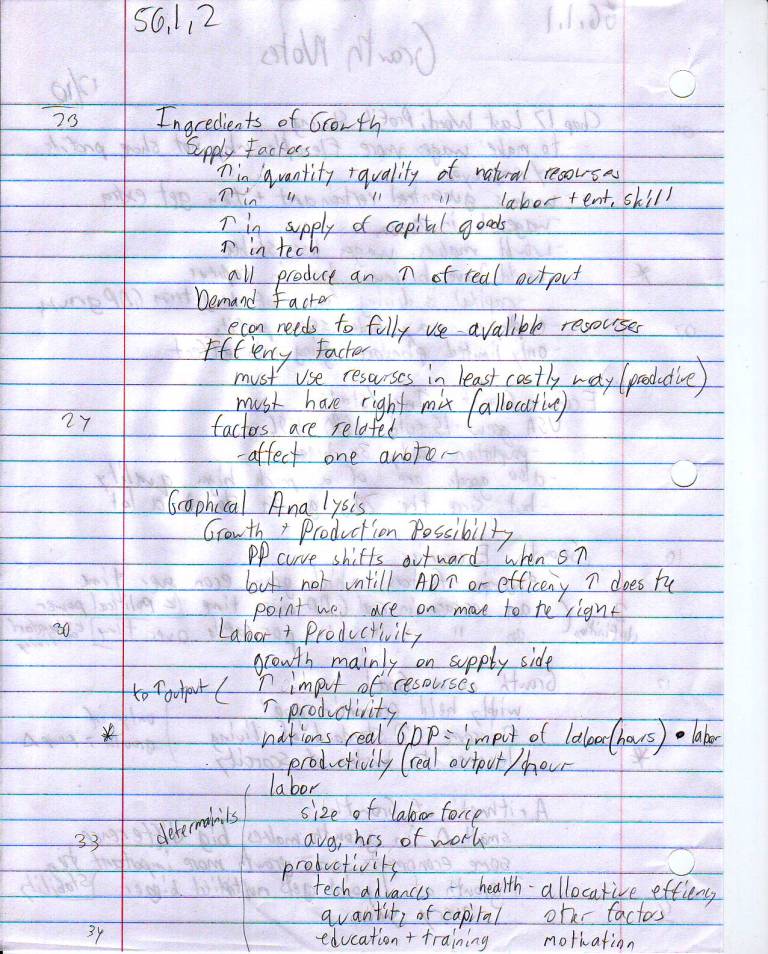 56.1.2
23 Ingredients of Growth
Supply Factors
↑ in quantity + quality of natural resourses
↑ in " " " labor + ent. skill
↑ in supply of capital goods
↑ in tech
all produce an ↑ of real output
Demand Factor
econ needs to fully use avalible resourses
Effieny Factor
must use resourses in least costly way (produtive)
must have right mix (allocative)
27 factors are related
-affect one another
Graphical Analysis
Growth + Production Possibilty
PP curve shifts outward when S↑
but not untill AD↑ or efficeny ↑ does the
point we are on move to the right
30 Labor + Productivity
growth mainly on supply side
to ↑ output ( ↑ imput of resourses
↑ productivity
* nations real GDP = imput of labor (hours) • labor
productivity (real output/hour
labor
determainits size of labor force
33 avg, hrs of work
productivity
tech advances health - allocative effieny
quantity of capital other factors
34 education + training motivation